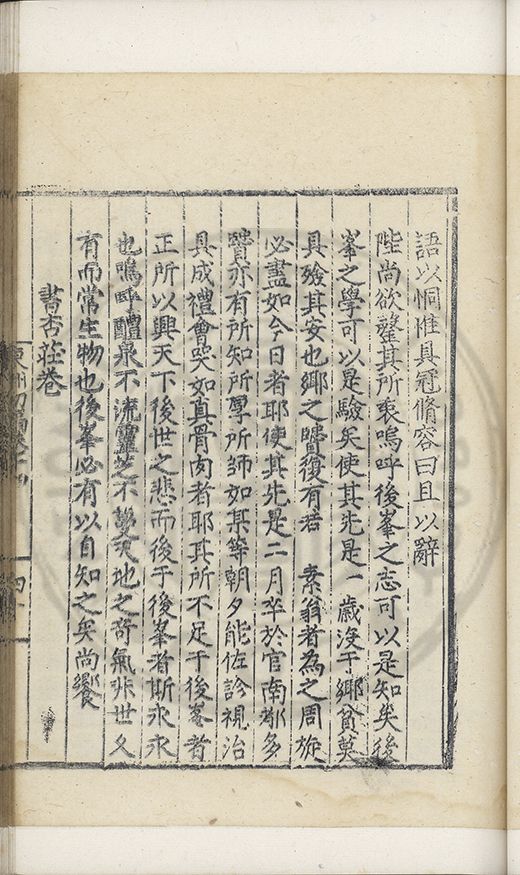 語以恫惟具冠脩容曰且以辭
陛尚欲罄其所衷嗚呼後峯之志可以是知矣後
峯之學可以是驗矣使其先是一歲没于鄉貧莫
具殮其安也鄉之醫復有若 素翁者為之周旋
必盡如今日者耶使其先是二月卒於官南都多
醫亦有所知所厚所師如某等朝夕能佐診視治
具成禮會哭如真骨肉者耶其所不足于後峯者
正所以興天下後世之悲而後于後峯者斯永永
也嗚呼醴泉不流靈芝不 天地之奇氣非世久
有而常生物也後峯必有以自知之矣尚饗
書杏莊卷
東洲初稿卷十四
四十